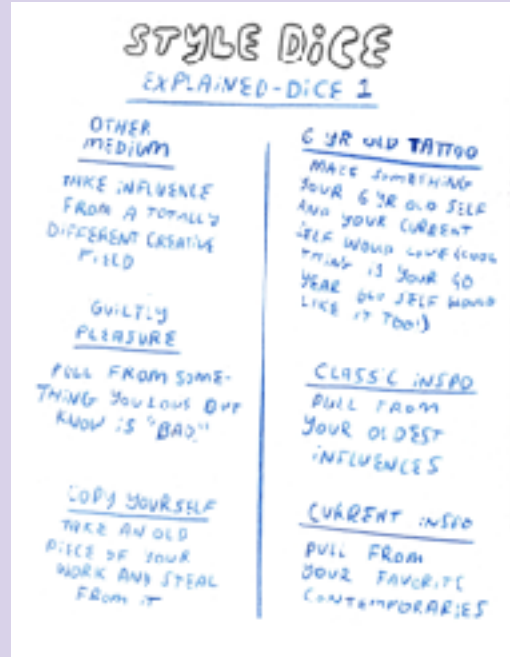 STYLE DICE
EXPLAINED-DICE 1
OTHER
MEDIUM
TAKE INFLUENCE
FROM A TOTALLY
DIFFERENT CREATIVE
FIELD
GUILTLY
PLEASURE
PULL FROM SOME-
THING YOU LOVE BUT
KNOW IS "BAD"
COPY YOURSELF
TAKE AN OLD
PIECE OF YOUR
WORK AND STEAL
FROM IT
6 YR OLD TATTOO
MAKE SOMETHING
YOUR 6 YR OLD SELF
AND YOUR CURRENT
SELF WOULD LOVE
THING IS YOUR 40
YEAR OLD SELF WOULD
LIKE IT TOO!)
CLASSIC INSPO
PULL FROM
YOUR OLDEST
INFLUENCES
CURRENT INSPO
PULL FROM
YOUR FAVORITE
CONTEMPORARIES